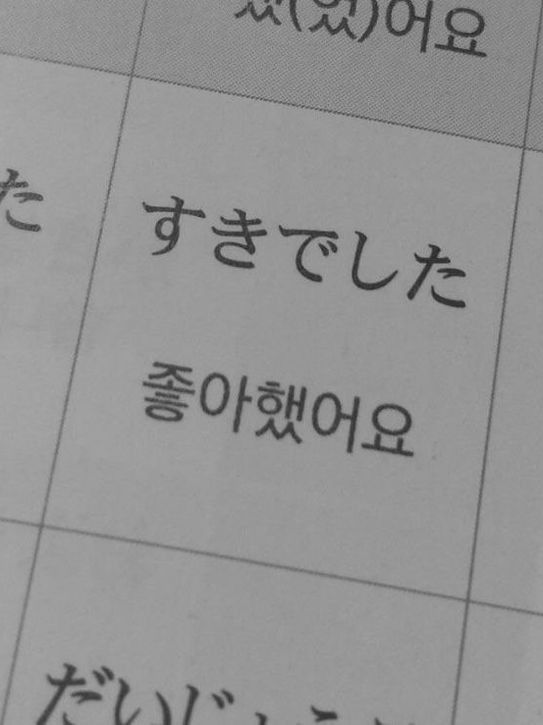 (었)어요
た
すきでした
좋아했어요
だいじ